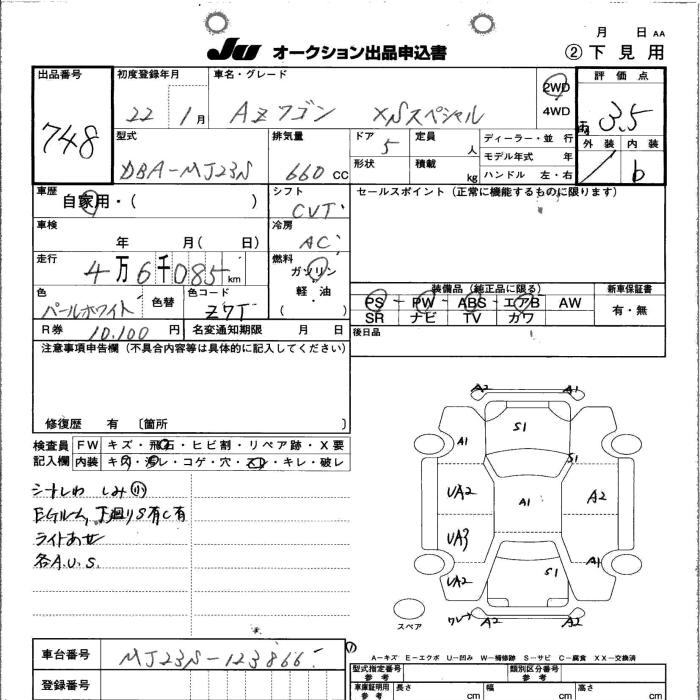 月 日 AA
JU オークション出品申込書
② 下見用
出品番号 748
初度登録年月 22 1月
車名・グレード AZワゴン XSスペシャル
2WD
4WD
評価点 3.5
外装 内装 b
型式 DBA-MJ23S
排気量 660 CC
ドア 5
定員 人
ディーラー・並行
モデル年式 年
形状
積載 kg
ハンドル 左・右
車歴 自家用・( )
シフト CVT
セールスポイント(正常に機能するものに限ります)
車検 年 月( 日)
冷房 AC
走行 4万6千085km
燃料 ガソリン 軽・油 ( )
色 パールホワイト
色替
色コード Z7T
装備品(純正品に限る)
PS PW ABS エアB AW
SR ナビ TV カワ
新車保証書 有・無
R券 10,100 円
名変通知期限 月 日
後日品
注意事項申告欄(不具合内容等は具体的に記入してください)
修復歴 有 〔箇所 〕
検査員記入欄
FW キズ・飛石・ヒビ割・リペア跡・X要
内装 キズ・汚レ・コゲ・穴・スレ・キレ・破レ
シートしわ しみ小
EGルーム、下廻りS有C有
ライトあせ
各A.U.S.
A2 A1
S1
A1 S1
UA2 A1 A2
UA3
UA2 S1 A1
ワレ A2 A2
スペア
A-キズ E-エクボ U-凹み W-補修跡 S-サビ C-腐食 XX-交換済
車台番号 MJ23S-123866
登録番号
型式指定番号 参考
類別区分番号 参考
車庫証明用 参考 長さ cm 幅 cm 高さ cm